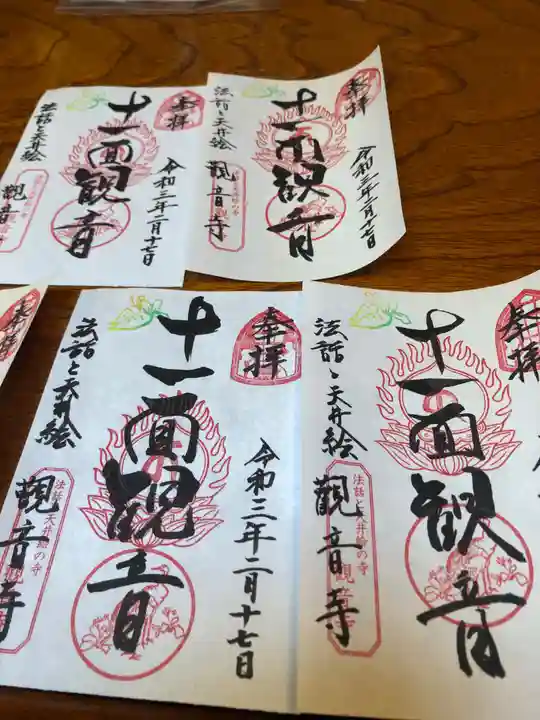 奉拝
十一面観音
法話と天井絵
観音寺
令和三年二月十七日
奉拝
十一面観音
法話と天井絵
観音寺
令和三年二月十七日
奉拝
奉拝
十一面観音
法話と天井絵
觀音寺
法話と天井絵の寺
令和三年二月十七日
奉拝
十一面観音
法話と天井絵
觀音寺
法話と天井絵の寺
観音寺